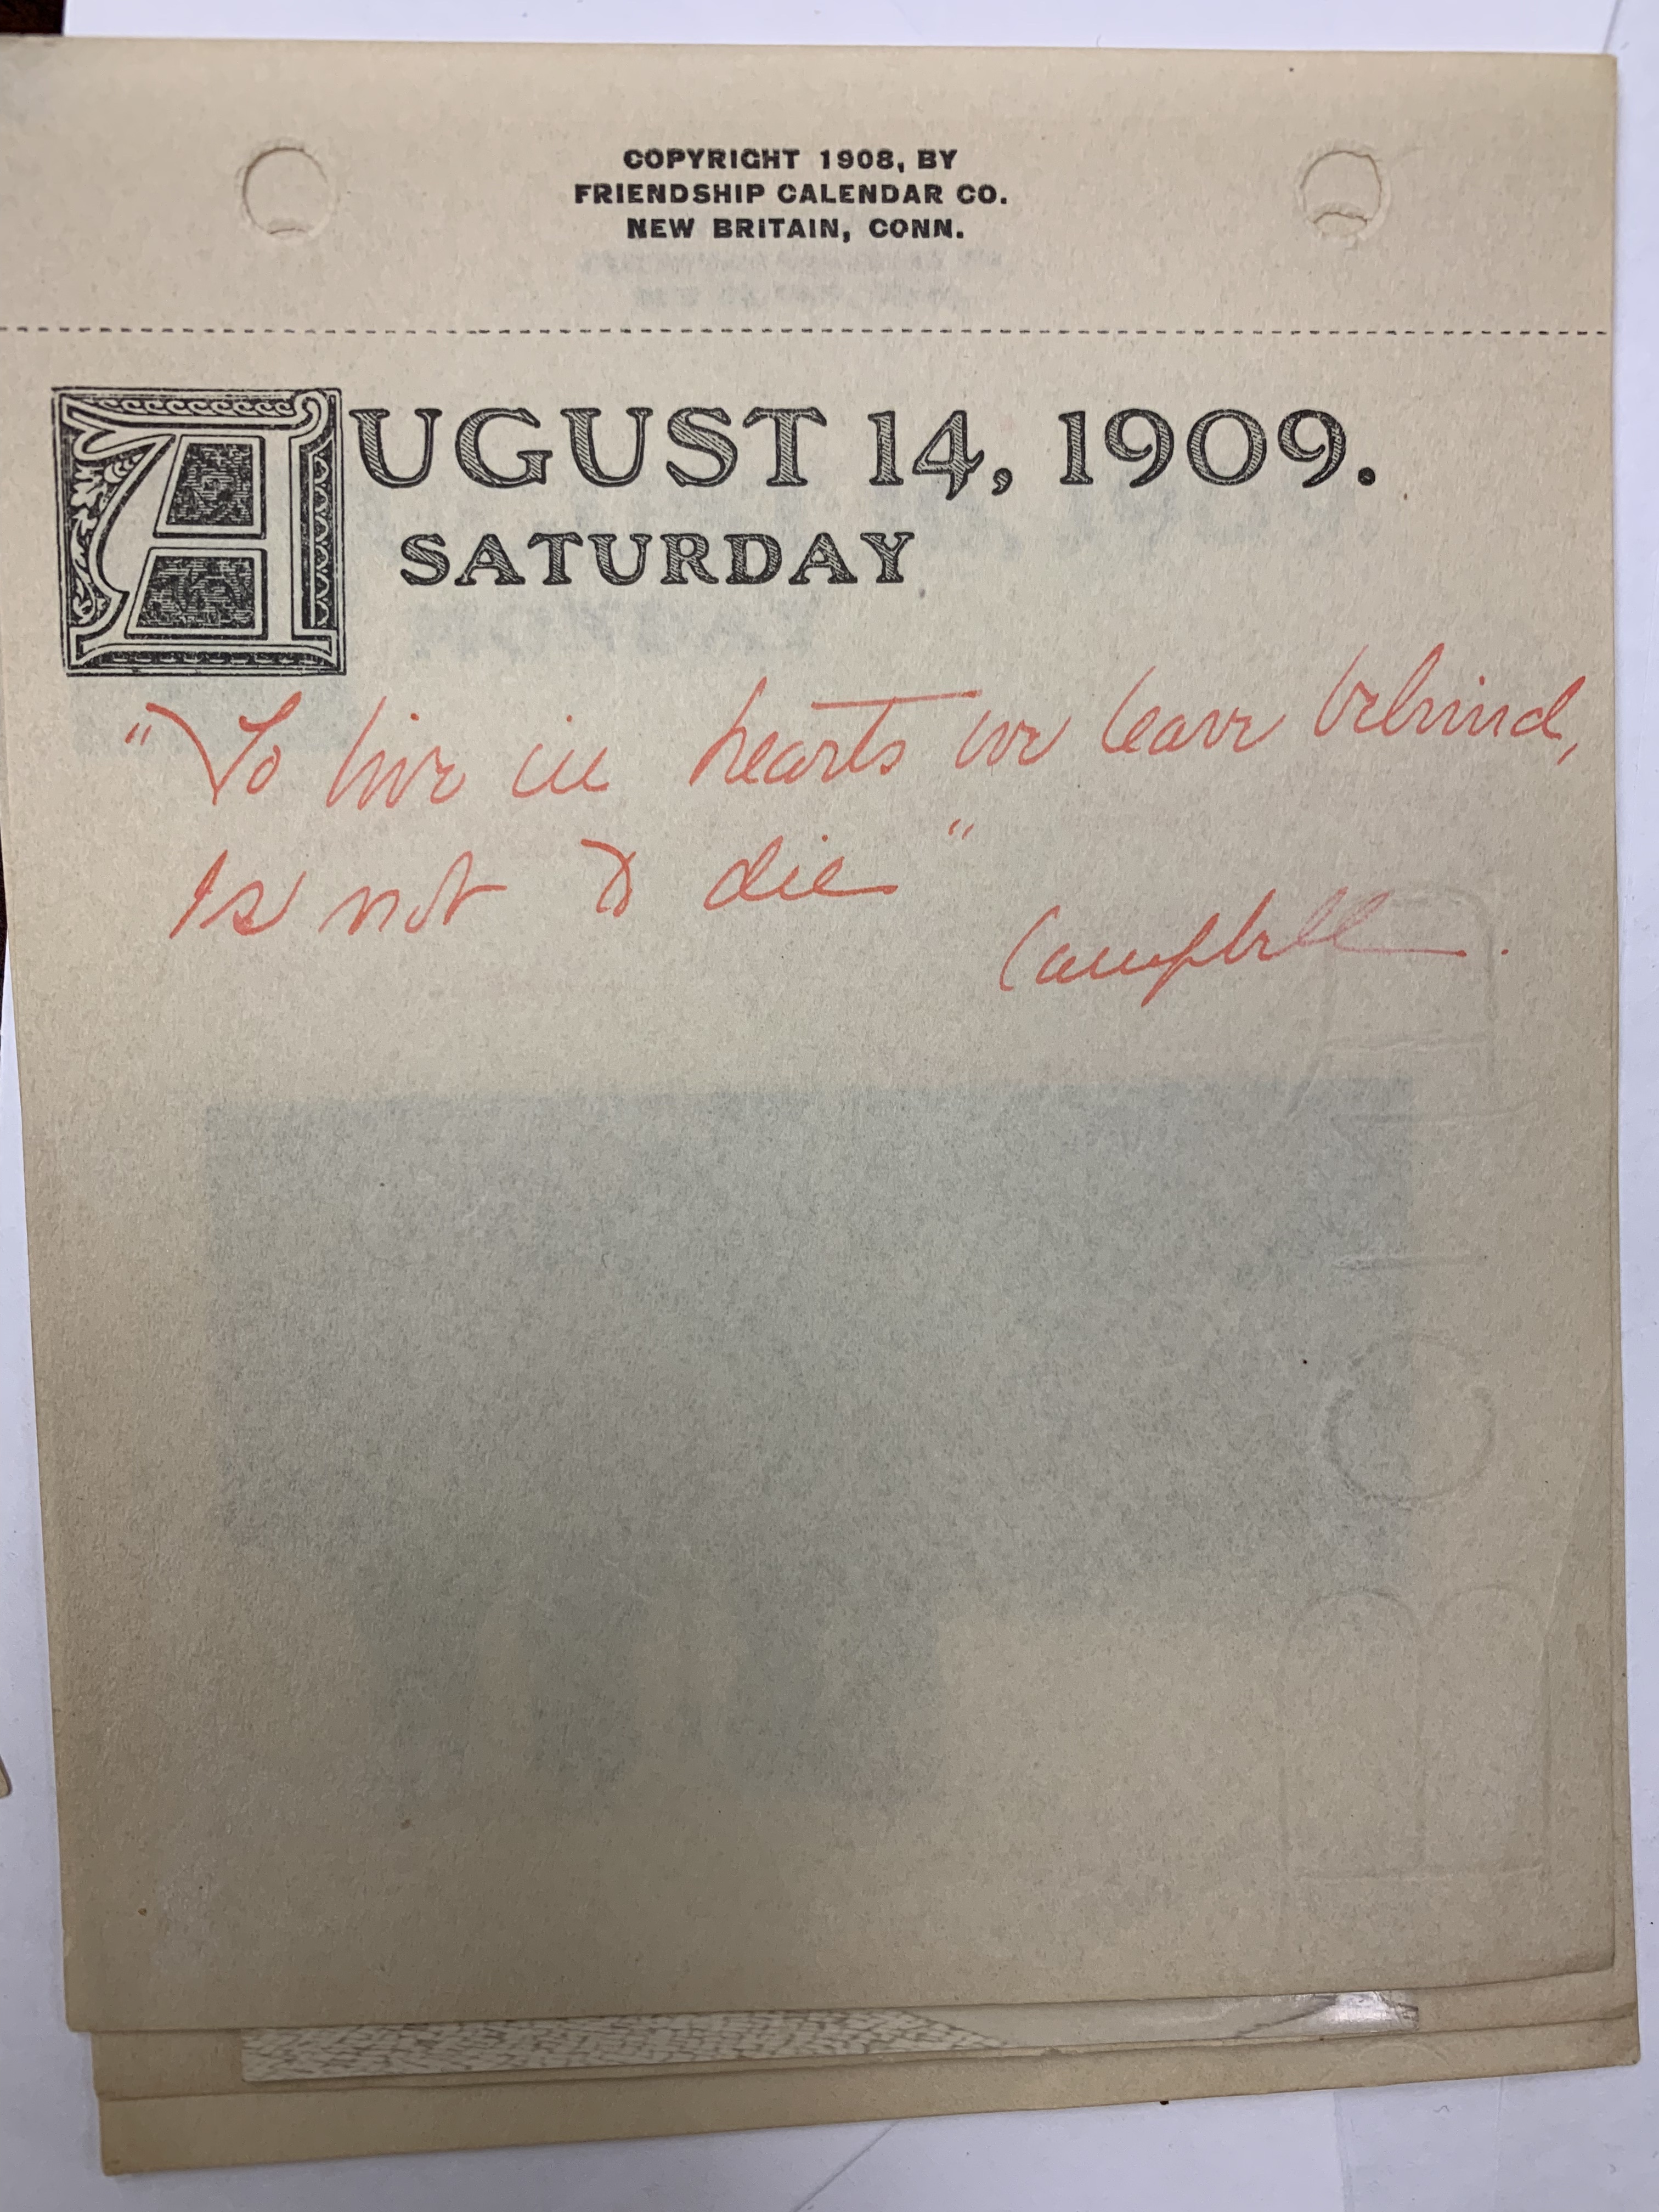 COPYRIGHT 1908, BY
FRIENDSHIP CALENDAR CO.
NEW BRITAIN, CONN.
AUGUST 14, 1909.
SATURDAY
"To live in hearts we leave behind,
Is not to die"
Campbell.